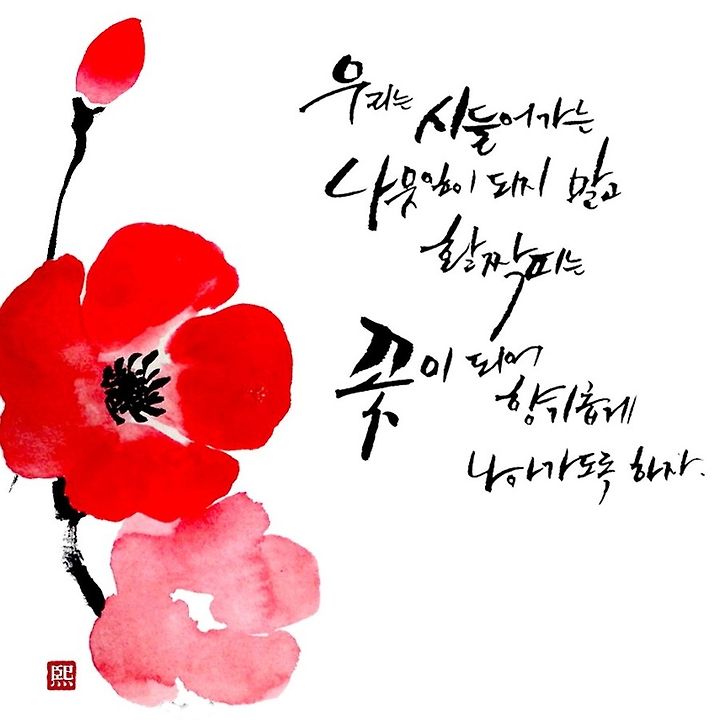 우리는 시들어가는
나뭇잎이 되지 말고
활짝피는
꽃이 되어
향기롭게
나아가도록 하자.
熙